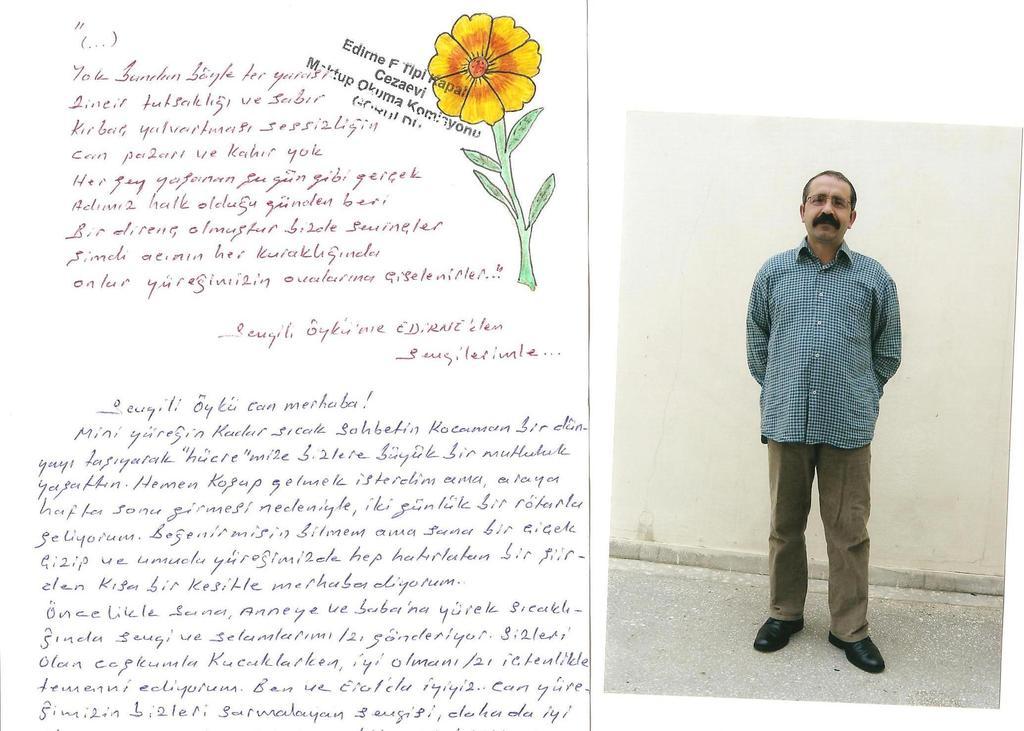 "(...)
Yok bundan böyle ter yarası
Zincir tutsaklığı ve sabır
Kırbaç yalvartması sessizliğin
Can pazarı ve kahır yok
Her şey yaşanan şu gün gibi gerçek
Adımız halk olduğu günden beri
Bir direnç olmuştur bizde sevinçler
Şimdi acının her kuraklığında
onlar yüreğimizin ovalarına çiselenirler..."
Edirne F Tipi Kapalı
Cezaevi
Mektup Okuma Komisyonu
Sevgili Öykü'me EDİRNE'den
Sevgilerimle...
Sevgili Öykü can merhaba!
Mini yüreğin kadar sıcak sohbetin kocaman bir dün-
yayı taşıyarak "hücre"mize bizlere büyük bir mutluluk
yaşattın. Hemen koşup gelmek isterdim ama, araya
hafta sonu girmesi nedeniyle, iki günlük bir rötarla
geliyorum. Beğenirmisin bilmem ama sana bir çiçek
çizip ve umudu yüreğimizde hep hatırlatan bir şiir-
den kısa bir kesitle merhaba diyorum.
Öncelikle sana, Anneye ve baba'na yürek sıcaklı-
ğında sevgi ve selamlarımızı gönderiyor. Sizleri
olan coşkumla kucaklarken, iyi olmanızı içtenlikle
temenni ediyorum. Ben ve Erol'da iyiyiz.. Can yüre-
ğimizin bizleri sarmalayan sevgisi, dahada iyi